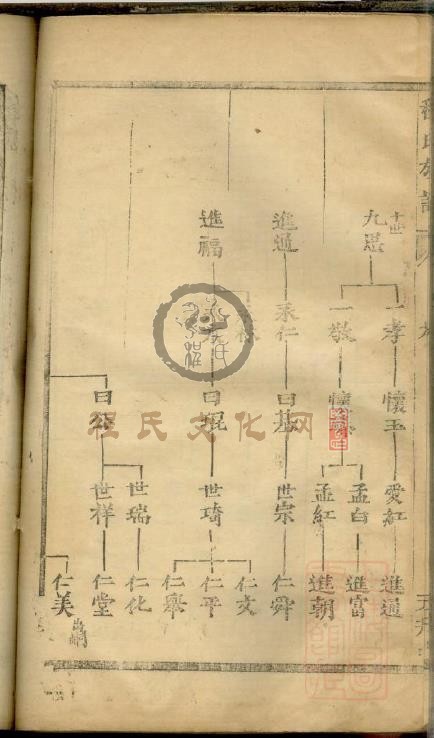 程氏族譜
九選
一孝
懷玉
愛紅
進通
一敬
孟白
進富
孟紅
進朝
進通
永仁
曰基
世宗
仁舜
進福
曰琨
世琦
仁文
仁平
仁舉
世瑞
仁化
世祥
仁堂
仁美
程氏文化网